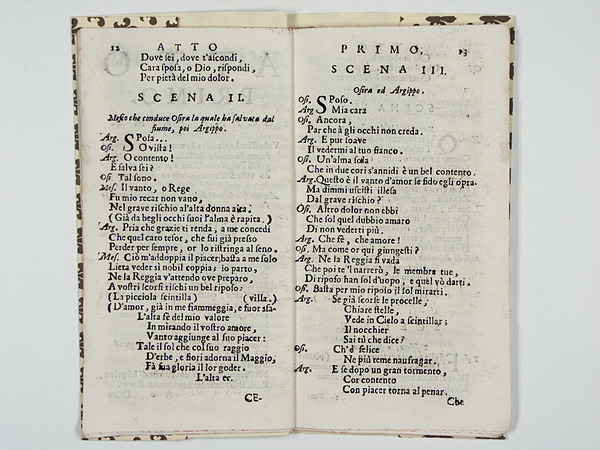 12 ATTO
Dove sei, dove t'ascondi,
Cara sposa, o Dio, rispondi,
Per pietà del mio dolor.
SCENA II.
Meso che conduce Osira la quale ha salvata dal
fiume, poi Argippo.
Arg. SPosa...
Osi. SO villa!
Arg. O contento!
E salva sei?
Osi Tal sono.
Mes. Il vanto, o Rege
Fu mio recar non vano,
Nel grave rischio al'alta donna aita.
(Già da begli occhi suoi l'alma è rapita.)
Arg. Pria che grazie ti renda, a me concedi
Che quel caro tesor, che fui già presso
Perder per sempre, or lo ristringa al seno.
Mes. Ciò m'addoppia il piacer; basta a me solo
Lieta veder sì nobil coppia; io parto,
Ne la Reggia v'attendo ove preparo,
A vostri scorsi rischi un bel riposo:
(La picciola scintilla) (villa.)
(D'amor, già in me fiammeggia, e fuor sfa-
L'alta fè del mio valore
In mirando il vostro amore,
Vanto aggiunge al suo piacer:
Tale il sol che col suo raggio
D'erbe, e fiori adorna il Maggio,
Fà sua gloria il lor goder.
L'alta ec.
CE-
PRIMO. 13
SCENA III.
Osira ed Argippo.
Osi. SPoso.
Arg SMia cara
Osi. Ancora,
Par che à gli occhi non creda.
Arg. E pur soave
Il vedermi al tuo fianco.
Osi. Un'alma sola
Che in due cori s'annidi è un bel contento.
Arg. Questo è il vanto d'amor se fido egli opra.
Ma dimmi uscisti illesa
Dal grave rischio?
Osi. Altro dolor non ebbi
Che sol quel dubbio amaro
Di non vederti più.
Arg. Che fè, che amore!
Osi. Ma come or qui giungesti?
Arg. Ne la Reggia si vada
Che poi te'l narrerò, le membra tue,
Di riposo han sol d'uopo, e quel vò darti.
Osi. Basta per mio riposo il sol mirarti.
Arg. Se già scorse le procelle,
Chiare stelle,
Vede in Cielo a scintillar;
Il nocchier
Sai tù che dice?
Osi. Ch'è felice
Ne più teme naufragar.
Arg. E se dopo un gran tormento,
Cor contento
Con piacer torna al penar.
Che